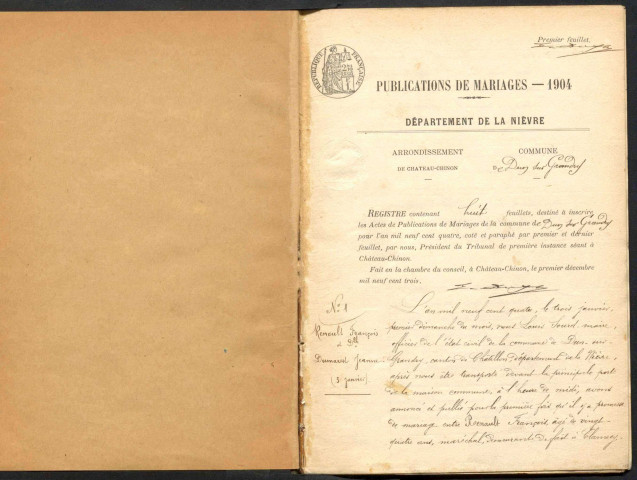 Premier feuillet.
RÉPUBLIQUE FRANÇAISE
PUBLICATIONS DE MARIAGES — 1904
DÉPARTEMENT DE LA NIÈVRE
ARRONDISSEMENT
DE CHATEAU-CHINON
COMMUNE
de Dun sur Grandry
REGISTRE contenant huit feuillets, destiné à inscrire
les Actes de Publications de Mariages de la commune de Dun sur Grandry
pour l'an mil neuf cent quatre, coté et paraphé par premier et dernier
feuillet, par nous, Président du Tribunal de première instance séant à
Château-Chinon.
Fait en la chambre du conseil, à Château-Chinon, le premier décembre
mil neuf cent trois.
N° 1
Renault François
&
Jeanne
(3 janvier)
L'an mil neuf cent quatre, le trois janvier,
premier dimanche du mois, nous Louis maire,
officier de l'état civil de la commune de Dun-sur-
Grandry, canton de Châtillon département de la Nièvre,
après nous être transporté devant la principale porte
de la maison commune, à l'heure de midi, avons
annoncé et publié pour la première fois qu'il y a promesse
de mariage entre Renault François, âgé de vingt-
quatre ans, maréchal, demeurant de fait à